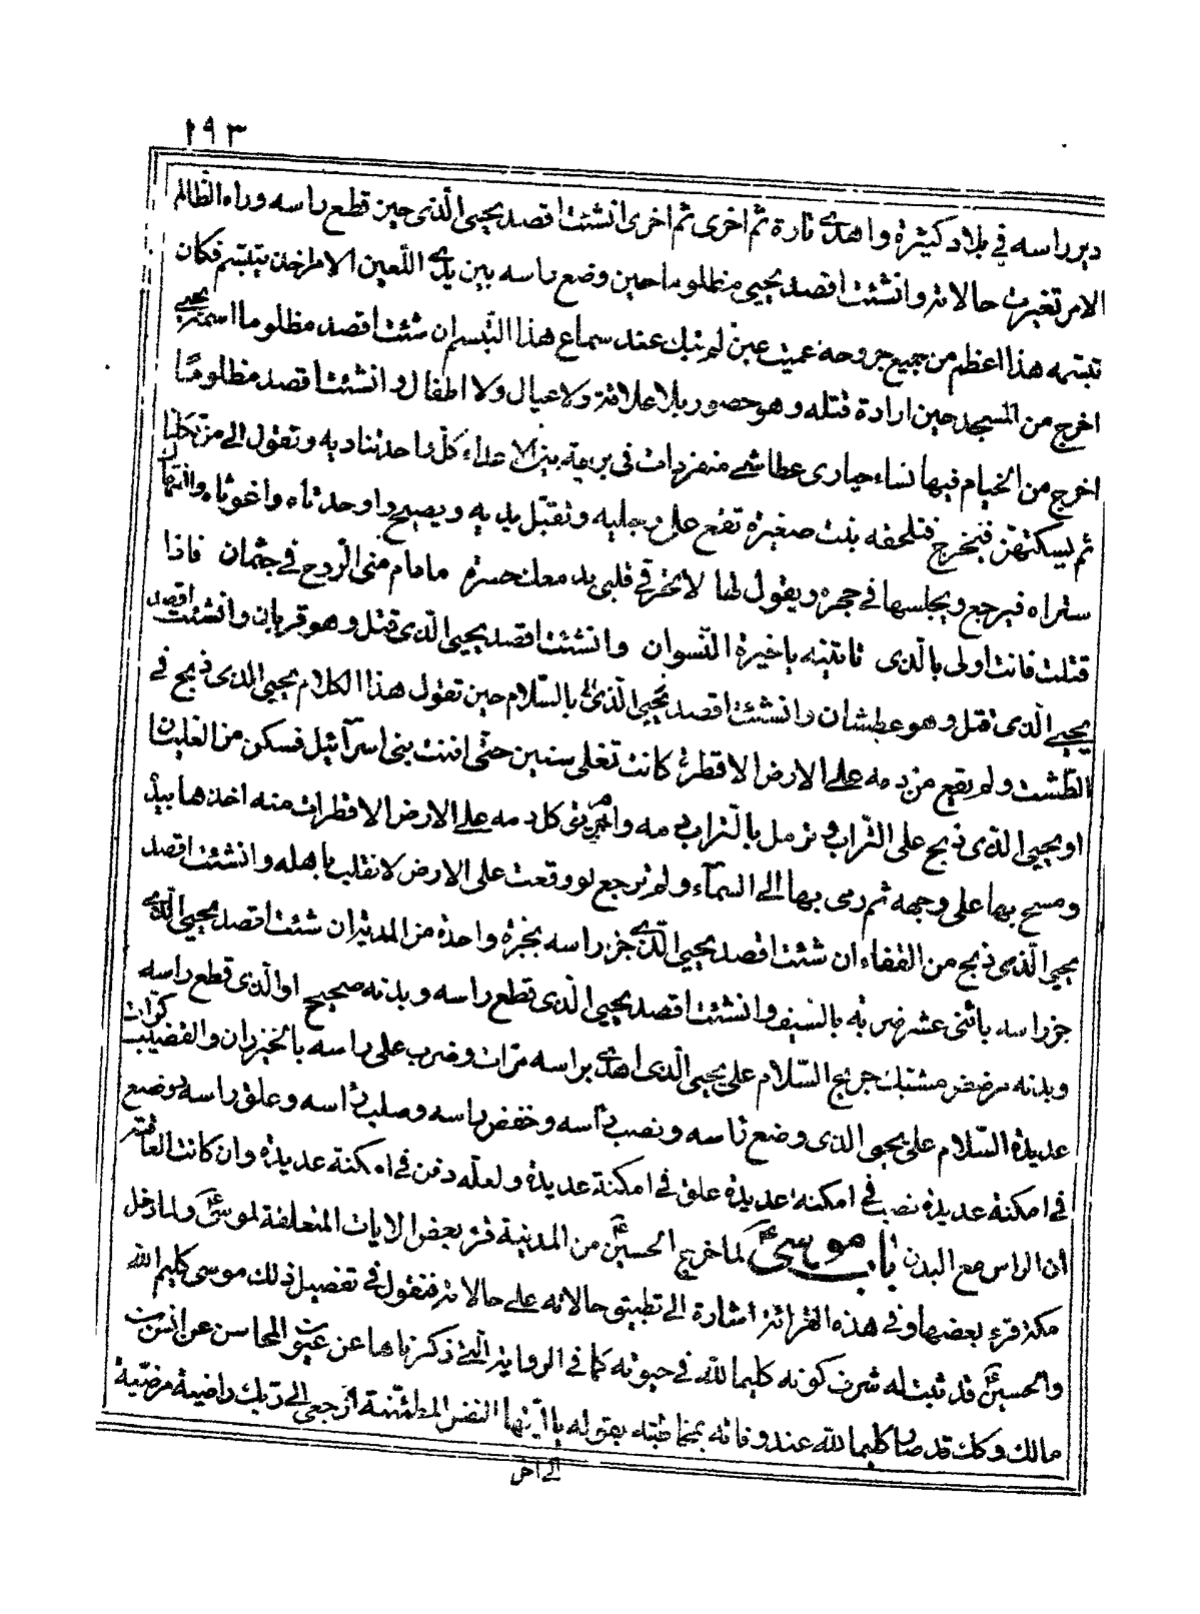 ٢٩٣
دير راسه في بلاد كثيرة واهدى تارة ثم اخرى ثم اخرى انشئت اقصد يحيى الذى حين قطع راسه وراه الظالم
الامر تغيرت حالاته وانشئت اقصد يحيى مظلوما حين وضع راسه بين يدى اللعين الامر اخذ يتبسم فكان
تبسمه هذا اعظم من جميع جروحه عميت عين لم تبك عند سماع هذا التبسم ان شئت اقصد مظلوما اسمه يحيى
اخرج من المسجد حين ارادة قتله وهو حصور بلا علاقة ولا عيال ولا اطفال وانشئت اقصد مظلوما
اخرج من الخيام فيها نساء حيارى عطاشى منفردات في برية بين الاعداء كل واحدة تناديه وتقول الى من تكلنا
ثم يسكتهن فيخرج فتلحقه بنت صغيرة تقع على رجليه وتقبل يديه ويصيح واوحدتاه واغوثاه
ستراه فيرجع ويجلسها في حجره ويقول لها لا تحرقي قلبي بدمعك حسرة مادام مني الروح في جثمان فاذا
قتلت فانت اولى بالذى تاتينه ياخيرة النسوان وانشئت اقصد يحيى الذى قتل وهو قربان وانشئت اقصد
يحيى الذى قتل وهو عطشان وانشئت اقصد يحيى الذى بالسلام حين تقول هذا الكلام يحيى الذى ذبح في
الطشت ولم يقع من دمه على الارض الا قطرة كانت تغلى سنين حتى افنت بنى اسرآئيل فسكن من الغليان
او يحيى الذى ذبح على التراب و ترمل بالتراب دمه وا كل دمه على الارض الا قطرات منه اخذها بيده
ومسح بها على وجهه ثم رمى بها الى السمآء ولم ترجع لو وقعت على الارض لانقلب باهله وانشئت اقصد
يحيى الذى ذبح من القفاء ان شئت اقصد يحيى الذى جز راسه بجزة واحدة من المدية ان شئت اقصد يحيى الذى
جز راسه باثنى عشر ضربة بالسيف وانشئت اقصد يحيى الذى قطع راسه وبدنه صحيح او الذى قطع راسه
وبدنه مرضض مشتبك جريح السلام على يحيى الذى اهدى براسه مرات وضرب على راسه بالخيزران والقضيب كرات
عديدة السلام على يحيى الذى وضع راسه ونصب رأسه وخفض راسه وصلب رأسه وعلق راسه وضع
في امكنة عديدة نصب في امكنة عديدة علق في امكنة عديدة ولعله دفن في امكنة عديدة وان كانت العاقبة
ان الراس مع البدن باب موسىٰ ع لما خرج الحسين ع من المدينة قرء بعض الايات المتعلقة لموسى ع ولما دخل
مكة قرء بعضها وفي هذه القرائة اشارة الى تطبيق حالاته على حالاته فنقول في تفصيل ذلك موسى كليم الله
والحسين ع قد ثبت له شرف كونه كليما لله في حيوته كما في الرواية التي ذكرناها عن عيون المحاسن عن انس بن
مالك وكك قد صار كليما لله عند وفاته بمخاطبته بقوله يا ايتها النفس المطمئنة ارجعى الى ربك راضية مرضية
الى اخر